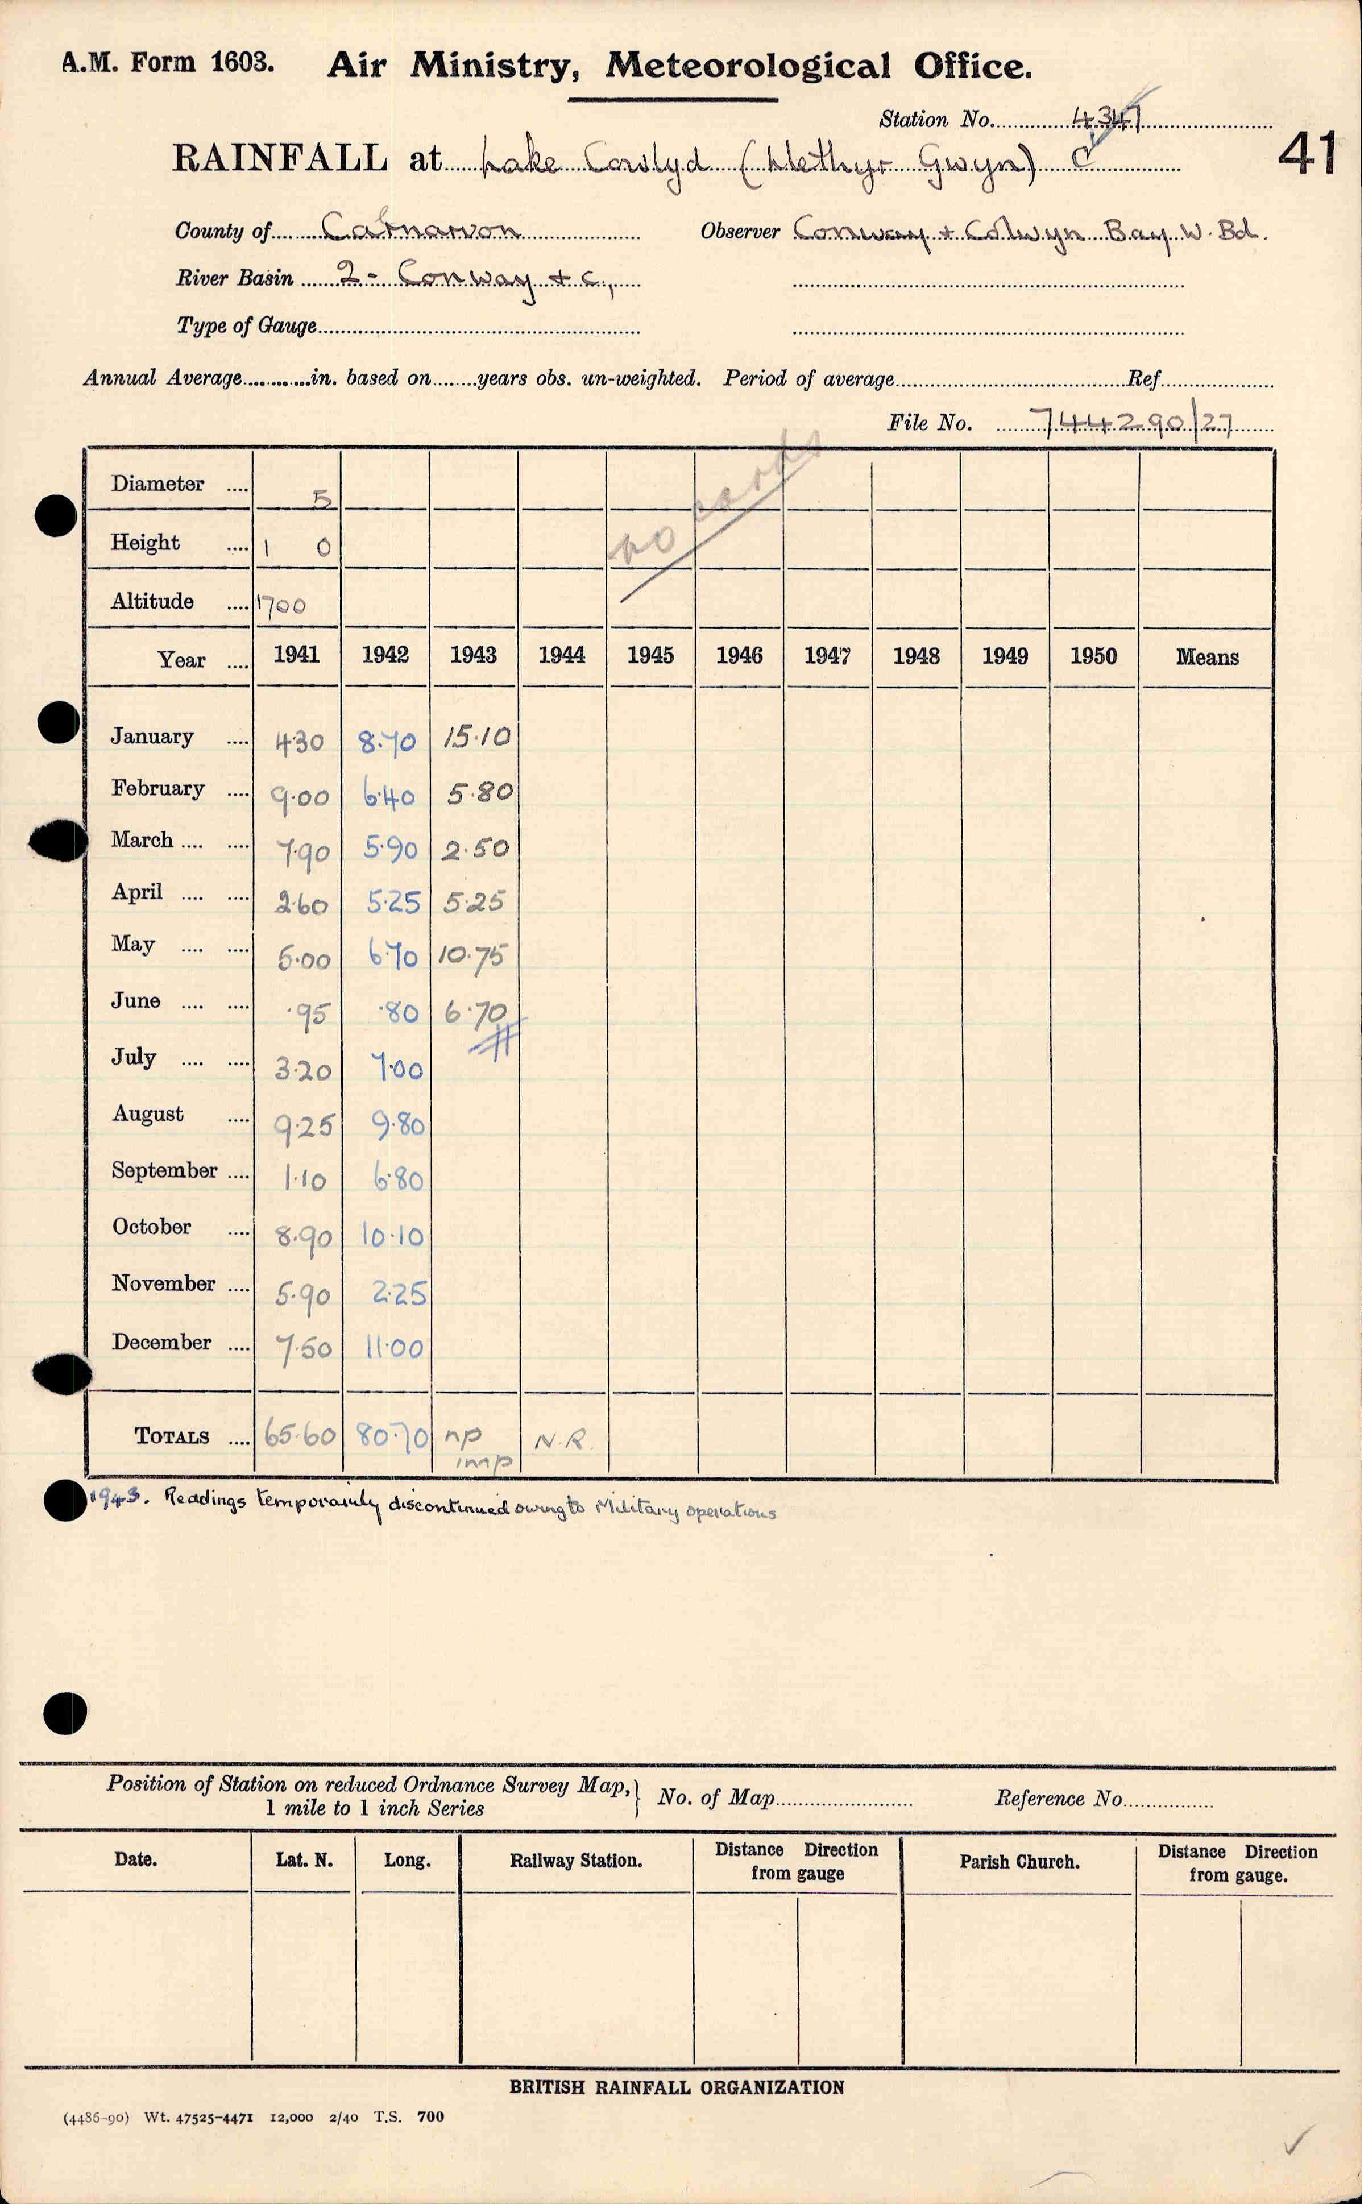 A.M. Form 1603. Air Ministry, Meteorological Office.
Station No. 4347
RAINFALL at Lake Cowlyd (Llethyr Gwyn) C
41
County of Carnarvon Observer Conway + Colwyn Bay W. Bd.
River Basin 2 - Conway + c,
Type of Gauge
Annual Average in. based on years obs. un-weighted. Period of average Ref
File No. 744290/27
no cards
Diameter 5
Height 1 0
Altitude 1700
Year 1941 1942 1943 1944 1945 1946 1947 1948 1949 1950 Means
January 4.30 8.70 15.10
February 9.00 6.40 5.80
March 7.90 5.90 2.50
April 2.60 5.25 5.25
May 5.00 6.70 10.75
June .95 .80 6.70
July 3.20 7.00
August 9.25 9.80
September 1.10 6.80
October 8.90 10.10
November 5.90 2.25
December 7.50 11.00
TOTALS 65.60 80.70 np N.R.
imp
1943. Readings temporarily discontinued owing to Military operations
Position of Station on reduced Ordnance Survey Map, } No. of Map Reference No.
1 mile to 1 inch Series
Date. Lat. N. Long. Railway Station. Distance Direction from gauge Parish Church. Distance Direction from gauge.
BRITISH RAINFALL ORGANIZATION
(4486-90) Wt. 47525-4471 12,000 2/40 T.S. 700